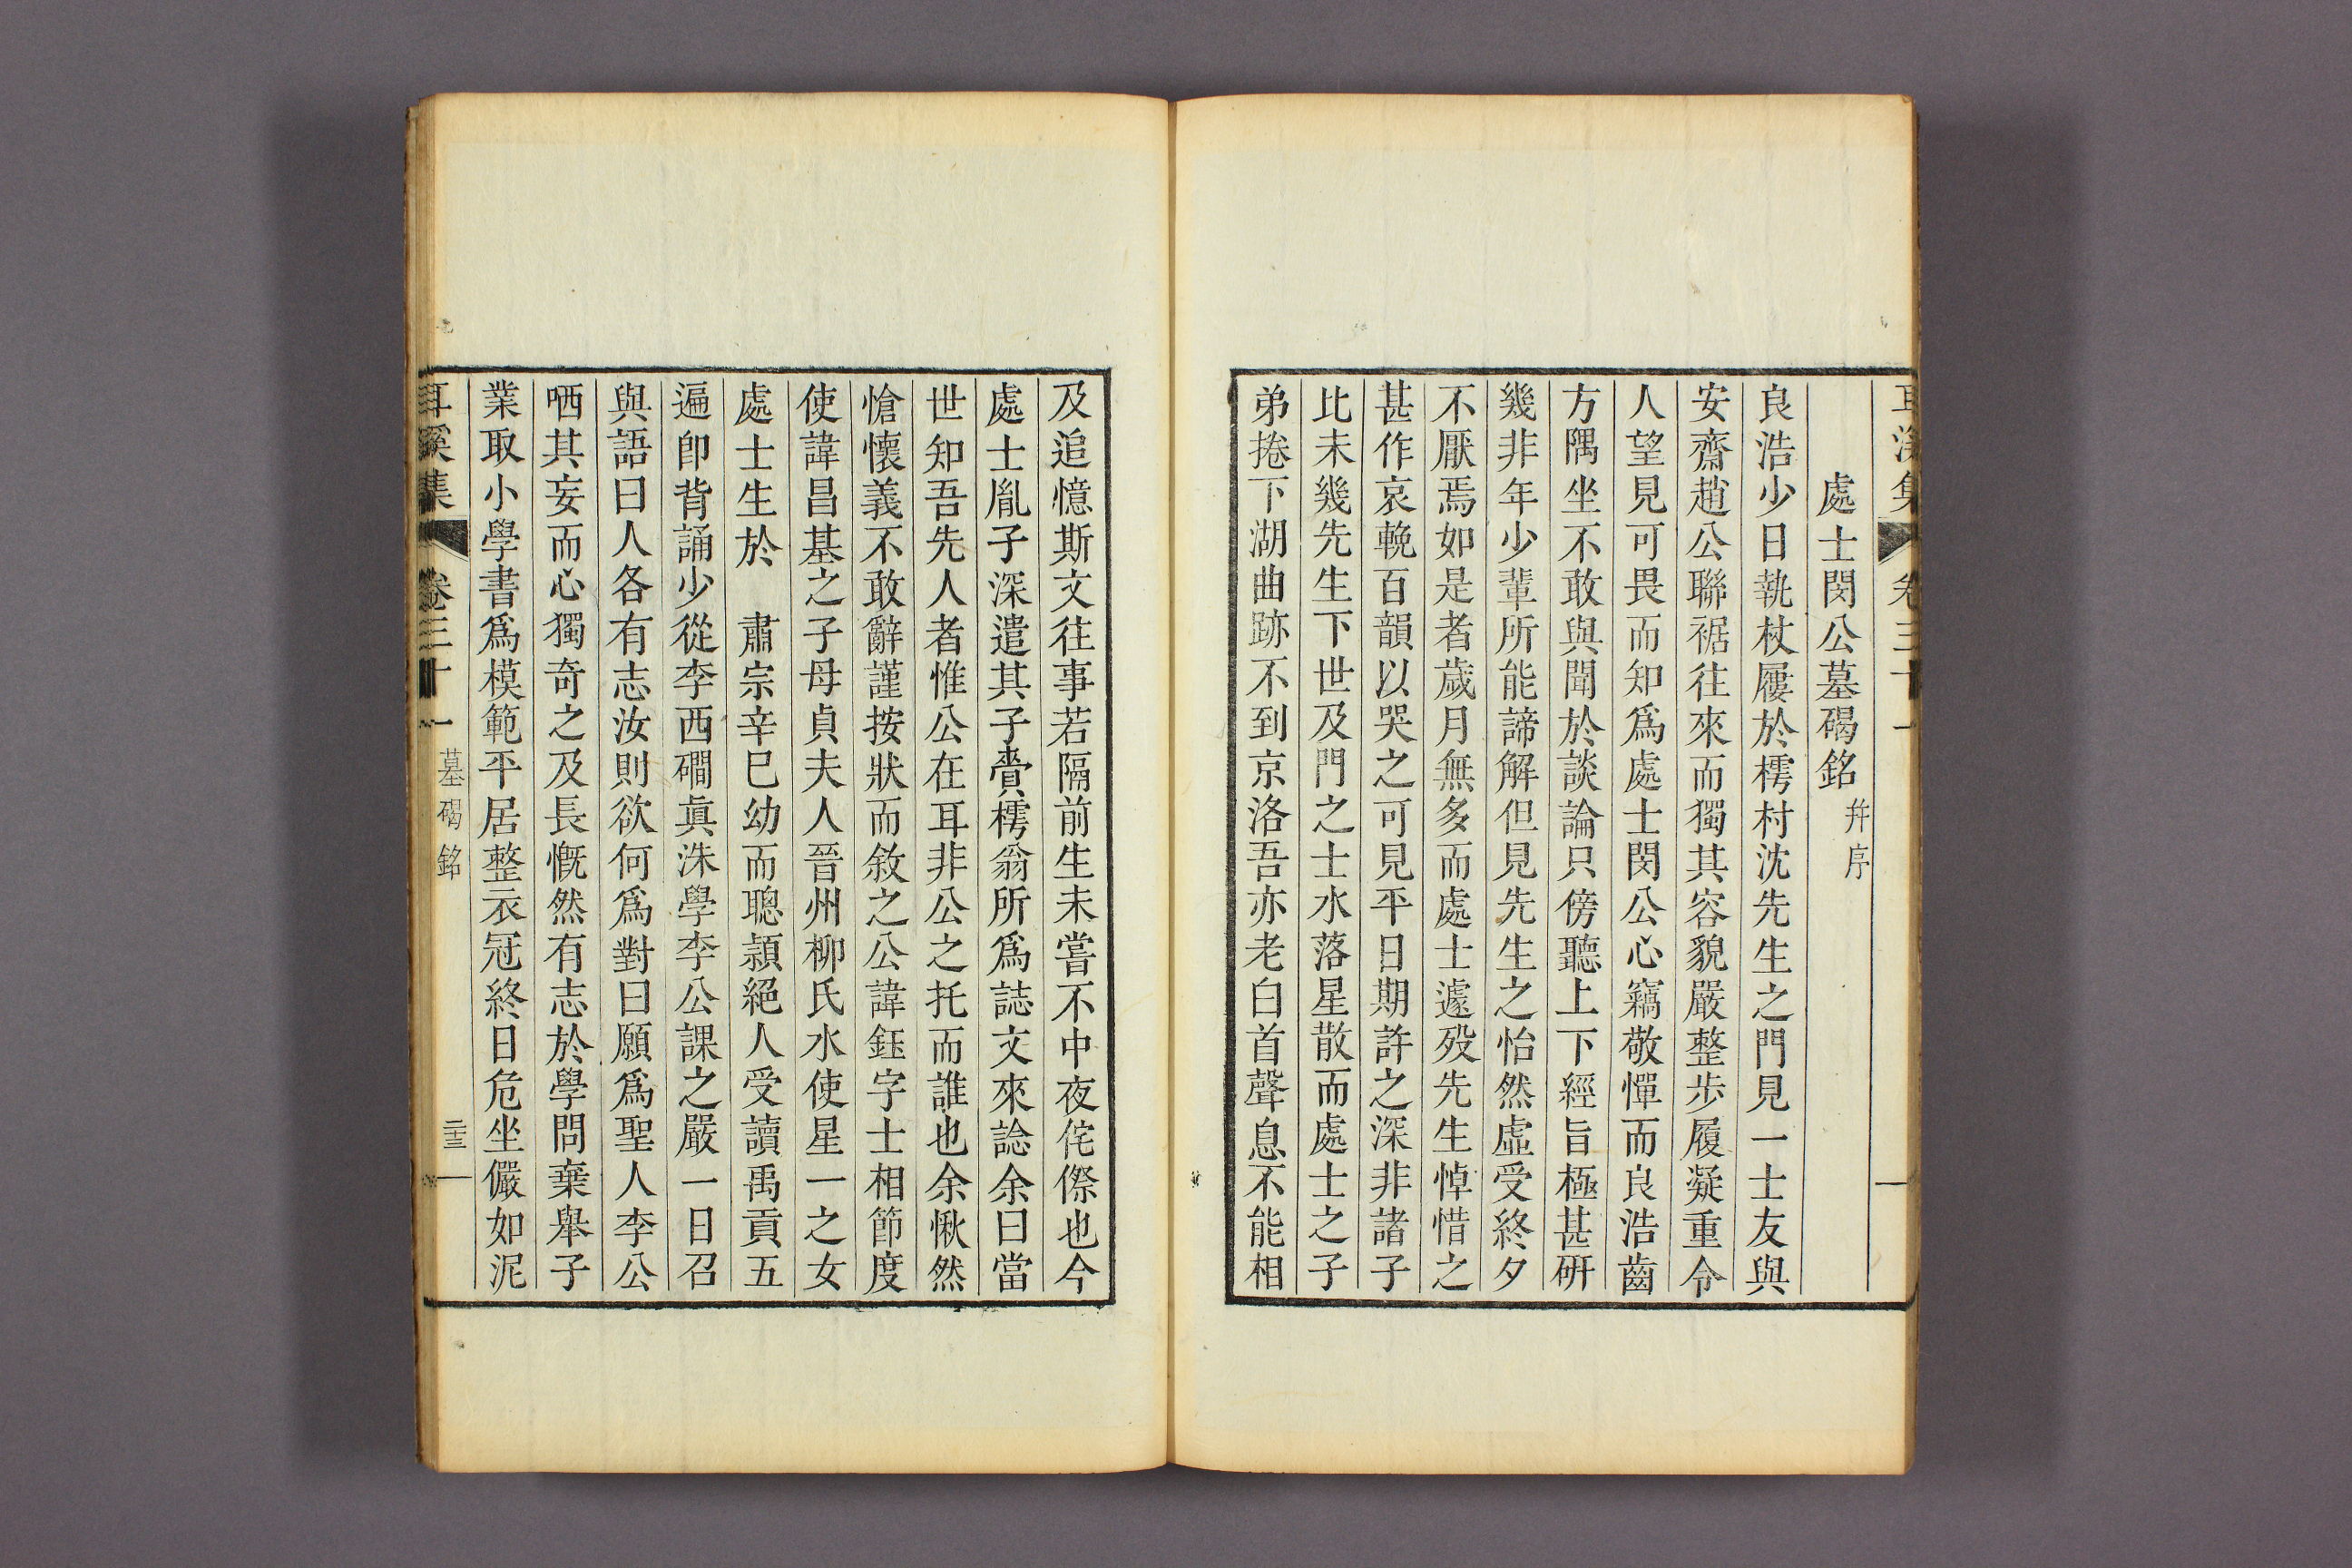 耳溪集 卷三十一
處士閔公墓碣銘 幷序
良浩少日執杖屨於樗村沈先生之門見一士友與
安齋趙公聯裾往來而獨其容貌嚴整步履凝重令
人望見可畏而知爲處士閔公心竊敬憚而良浩齒
方隅坐不敢與聞於談論只傍聽上下經旨極甚硏
幾非年少輩所能諦解但見先生之怡然虛受終夕
不厭焉如是者歲月無多而處士遽歿先生悼惜之
甚作哀輓百韻以哭之可見平日期許之深非諸子
比未幾先生下世及門之士水落星散而處士之子
弟捲下湖曲跡不到京洛吾亦老白首聲息不能相
及追憶斯文往事若隔前生未嘗不中夜侘傺也今
處士胤子深遣其子賷樗翁所爲誌文來諗余曰當
世知吾先人者惟公在耳非公之托而誰也余愀然
愴懷義不敢辭謹按狀而敘之公諱鈺字士相節度
使諱昌基之子母貞夫人晉州柳氏水使星一之女
處士生於 肅宗辛巳幼而聰潁絕人受讀禹貢五
遍卽背誦少從李西磵眞洙學李公課之嚴一日召
與語曰人各有志汝則欲何爲對曰願爲聖人李公
哂其妄而心獨奇之及長慨然有志於學問棄舉子
業取小學書爲模範平居整衣冠終日危坐儼如泥
耳溪集 卷三十一 墓碣銘 二十三